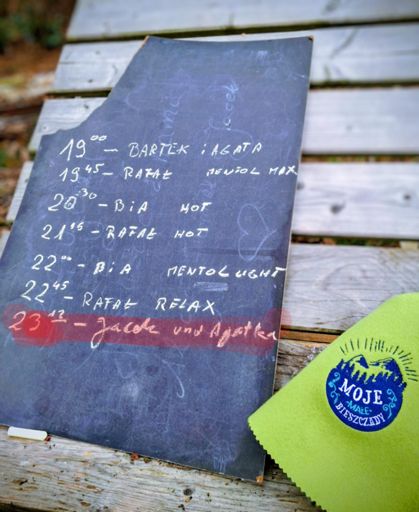 19⁰⁰ – BARTEK i AGATA
19⁴⁵ – RAFAŁ MENTOL MAX
20³⁰ – BiA HOT
21¹⁵ – RAFAŁ HOT
22⁰⁰ – BiA MENTOL LIGHT
22⁴⁵ – RAFAŁ RELAX
23¹³ – Jacek und Agatka
MOJE
MAŁE
BIESZCZADY